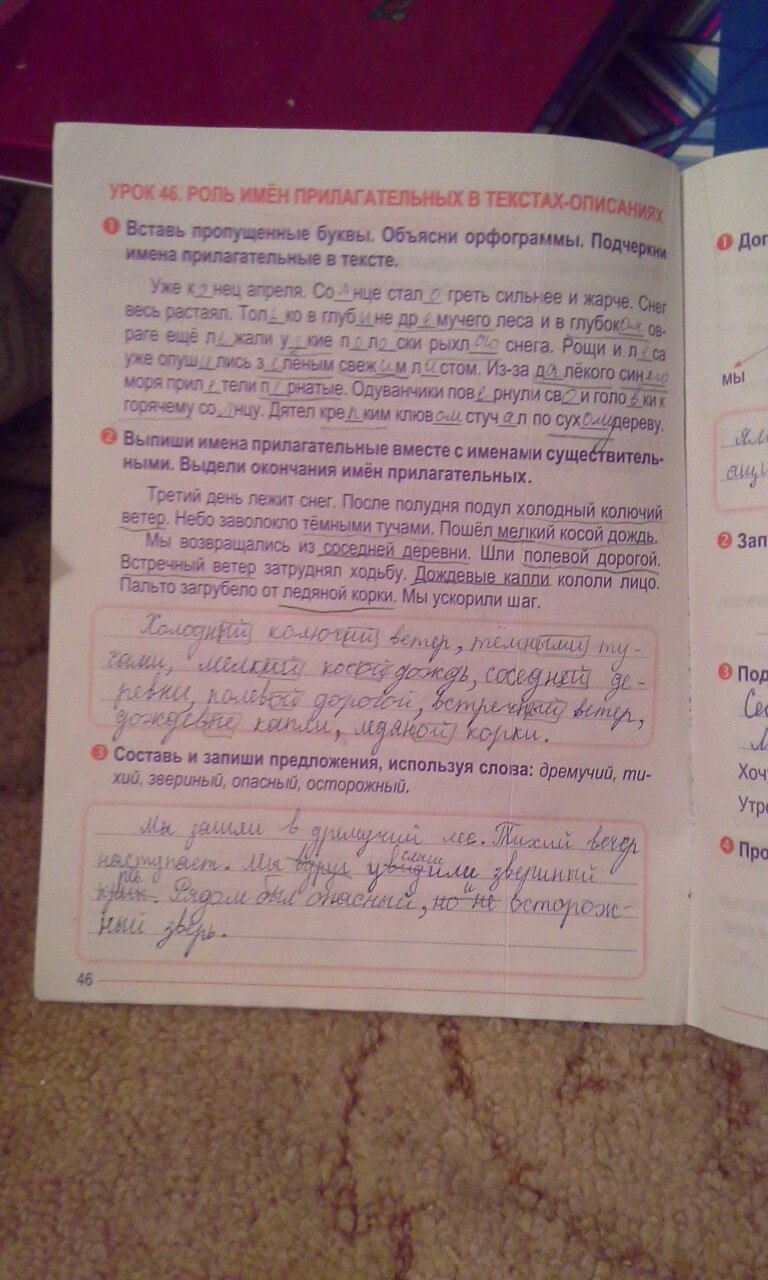 УРОК 46. РОЛЬ ИМЁН ПРИЛАГАТЕЛЬНЫХ В ТЕКСТАХ-ОПИСАНИЯХ
1 Вставь пропущенные буквы. Объясни орфограммы. Подчеркни
имена прилагательные в тексте.
Уже конец апреля. Солнце стало греть сильнее и жарче. Снег
весь растаял. Только в глубине дремучего леса и в глубоком ов-
раге ещё лежали узкие полоски рыхлого снега. Рощи и леса
уже опушились зелёным свежим листом. Из-за далёкого синего
моря прилетели пернатые. Одуванчики повернули свои головки к
горячему солнцу. Дятел крепким клювом стучал по сухому дереву.
2 Выпиши имена прилагательные вместе с именами существитель-
ными. Выдели окончания имён прилагательных.
Третий день лежит снег. После полудня подул холодный колючий
ветер. Небо заволокло тёмными тучами. Пошёл мелкий косой дождь.
Мы возвращались из соседней деревни. Шли полевой дорогой.
Встречный ветер затруднял ходьбу. Дождевые капли кололи лицо.
Пальто загрубело от ледяной корки. Мы ускорили шаг.
Холодный колючий ветер, тёмными ту-
чами, мелкий косой дождь, соседней де-
ревни, полевой дорогой, встречный ветер,
дождевые капли, ледяной корки.
3 Составь и запиши предложения, используя слова: дремучий, ти-
хий, звериный, опасный, осторожный.
Мы зашли в дремучий лес. Тихий вечер
наступает. Мы вдруг услышили звериный
рёв. Рядом был опасный, но не и осторож-
ный зверь.
46
1 Дог
мы
2 Зап
3 Под
Хоч
Утро
4 Про